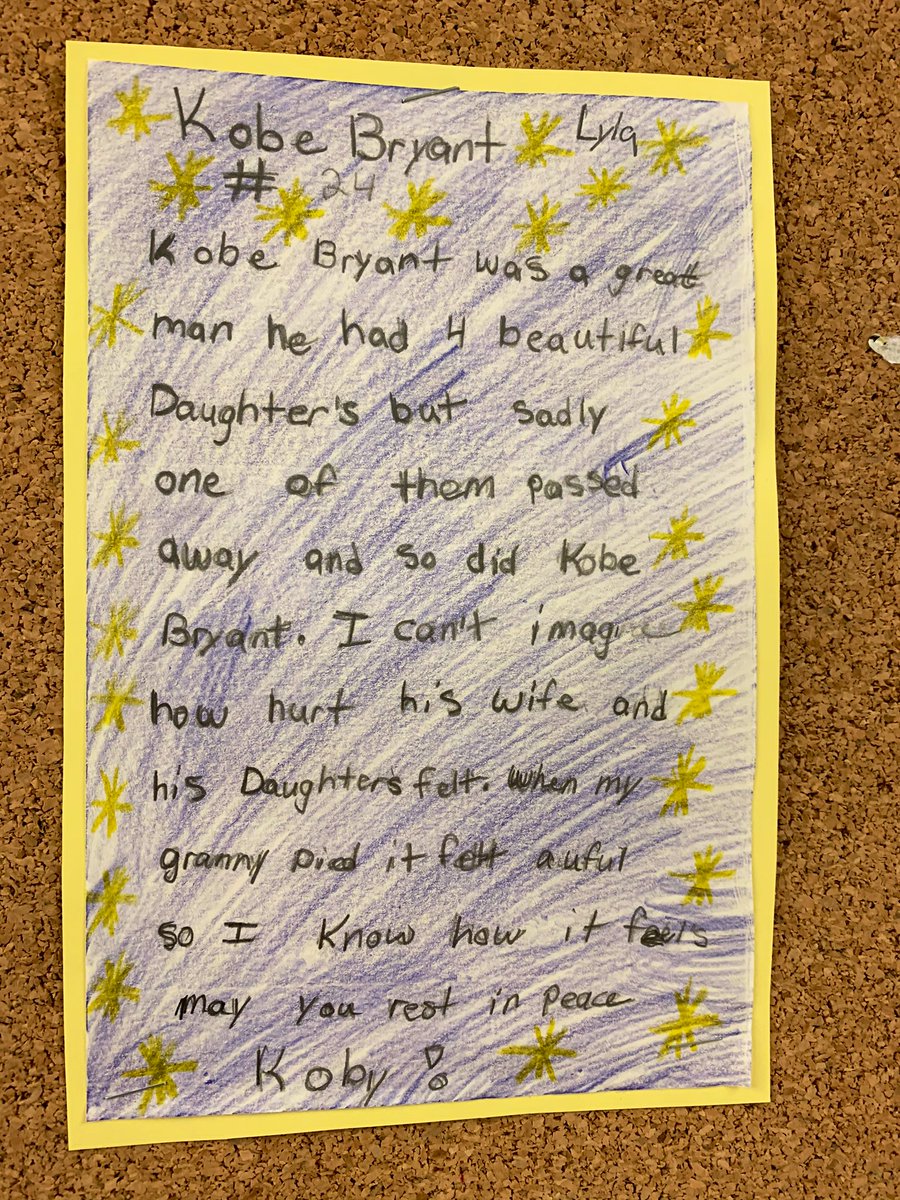 Kobe Bryant Lyla
# 24
Kobe Bryant was a great
man he had 4 beautiful
Daughter's but sadly
one of them passed
away and so did Kobe
Bryant. I can't imagine
how hurt his wife and
his Daughters felt. When my
granny Died it felt auful
so I Know how it feels
may you rest in peace
Koby!